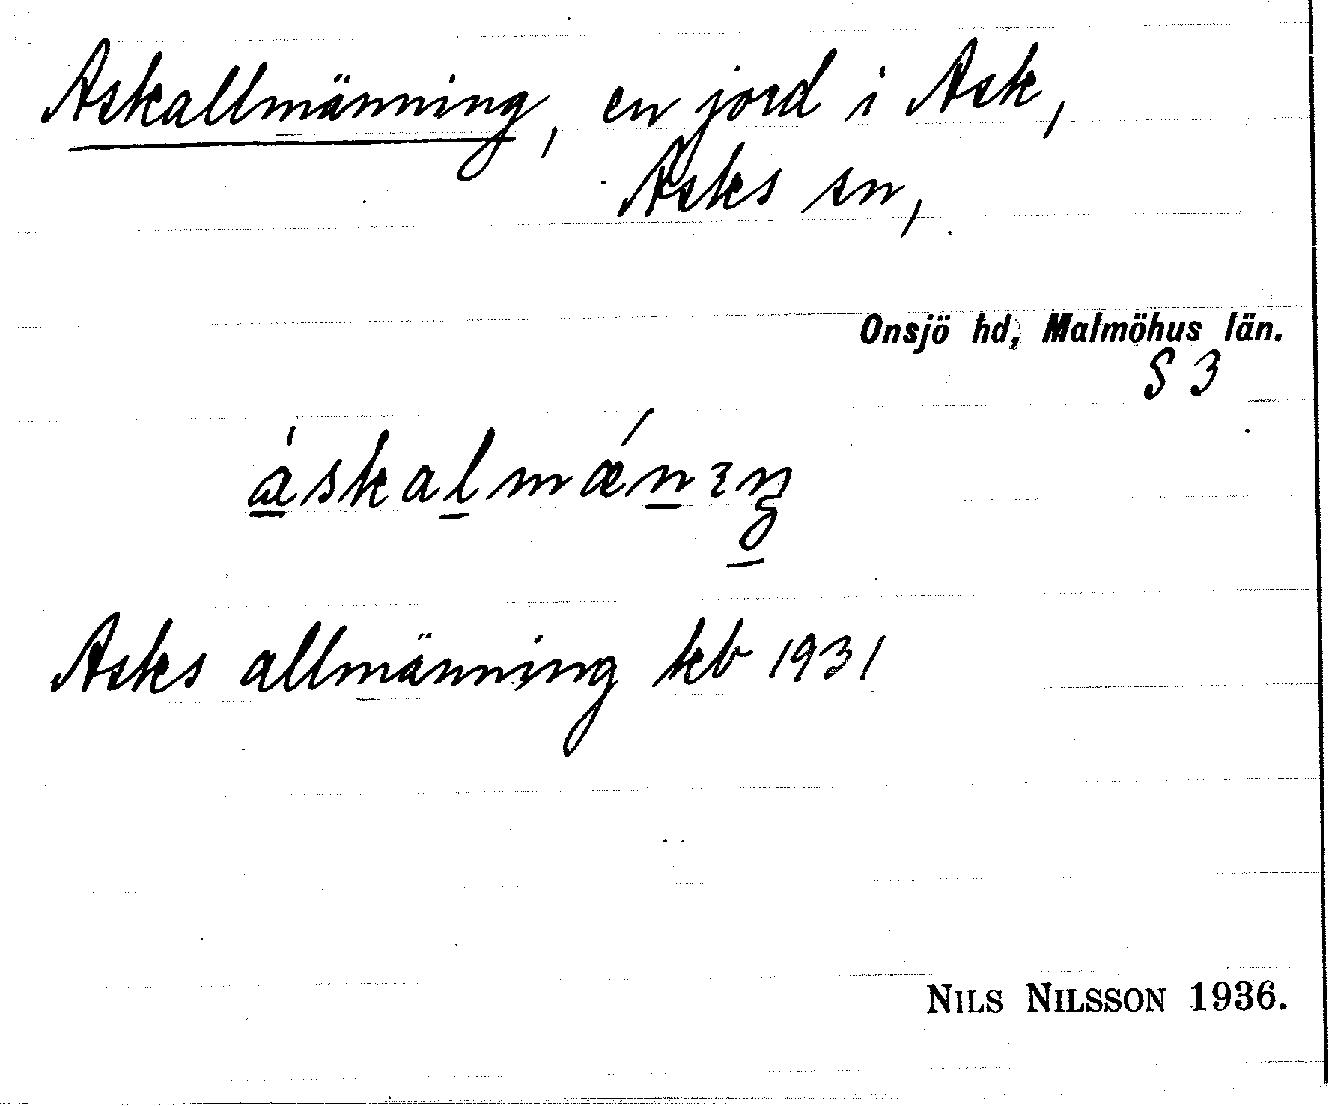 Askallmänning, en jord i Ask,
Asks sn,
Onsjö hd, Malmöhus län.
S 3
àskalmǽnıŋ
Asks allmänning kb 1931
NILS NILSSON 1936.